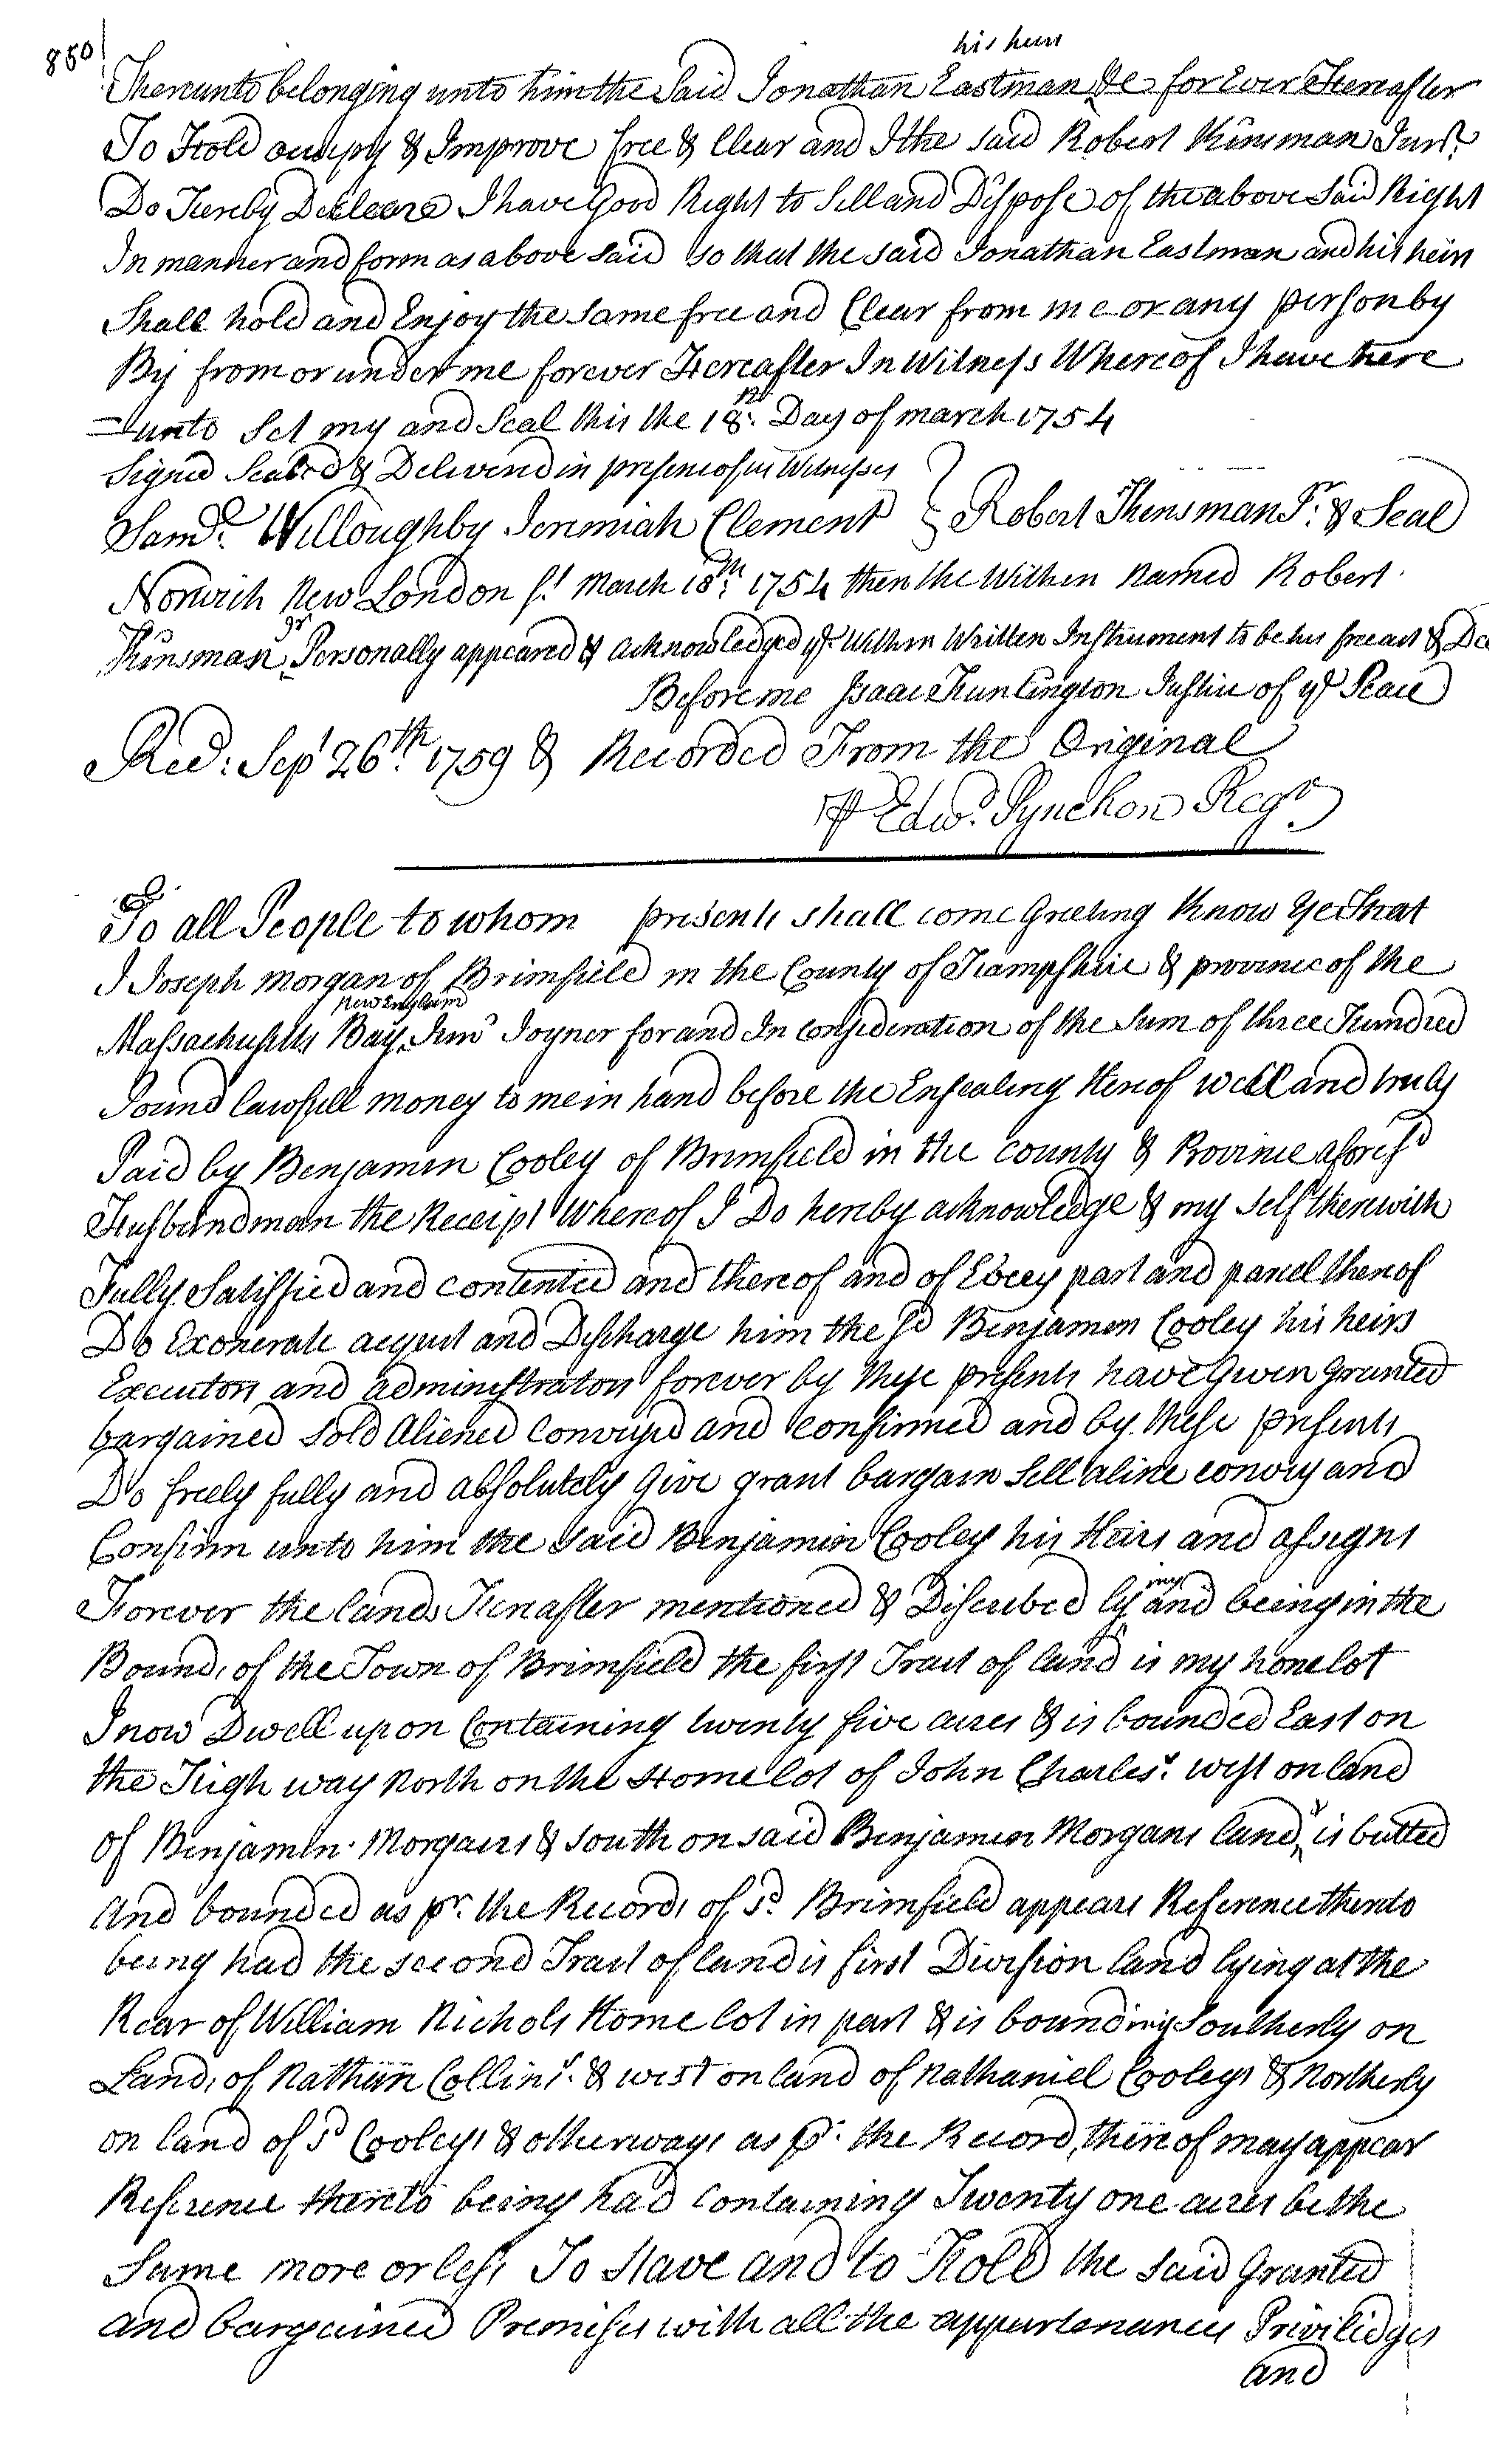 850
his heirs
Thereunto belonging unto him the Said Jonathan Eastman &c for Ever Hereafter
To Hold ocupy & Improve free & Clear and I the said Robert Kinsman Junr
Do Hereby Decleare I have Good Right to Sell and Dispose of the above Said Right
In manner and form as above said so that the said Jonathan Eastman and his heirs
Shall hold and Enjoy the Same free and Clear from me or any person by
By from or under me forever Hereafter In Witness Whereof I have here
=unto Set my and Seal this the 18th Day of march 1754
Signed Sealed & Delivered in presence of us Witnesses
Samll Willoughby Jeremiah Clement } Robert Kinsman Jr: & Seal
Norwich New London ss March 18th: 1754 then the Within Named Robert
Kinsman jr Personally appeared & acknowledged ye Within Written Instrument to be his free act & Dee
Before me Isaac Huntington Justice of ye Peace
Recd: Sept 26th: 1759 & Recorded From the Original
P Edwd. Pynchon Regr
To all People to whom presents shall come Greeting Know Ye That
I Joseph Morgan of Brimfield in the County of Hampshire & province of the
new England
Massachusetts Bay Senr Joyner for and In Consideration of the Sum of three Hundred
Pound lawfull money to me in hand before the Ensealing Hereof well and truly
Paid by Benjamin Cooley of Brimfield in the county & Province aforesd
Husbandman the Receipt Whereof I Do hereby acknowledge & my Self therewith
Fully Satisfied and contented and thereof and of Every part and parcel thereof
Do Exonerate acquit and Discharge him the sd Benjamin Cooley his heirs
Executors and administrators forever by these presents have Given Granted
bargained sold Aliened Conveyed and Confirmed and by these presents
Do freely fully and absolutely Give grant bargain sell aline convey and
Confirm unto him the said Benjamin Cooley his Heirs and assigns
Forever the lands Hereafter mentioned & Discribed lying and being in the
Bounds of the Town of Brimfield the first Tract of land is my homelot
I now Dwell upon Containing twenty five acres & is bounded East on
the High way North on the Homelot of John Charles's west on land
of Benjamin Morgans & South on said Benjamin Morgans land & is butted
And bounded as pr. the Records of sd. Brimfield appears Reference thereto
being had the second Tract of land is first Division land lying at the
Rear of William Nichols Home lot in part & is bounding Southerly on
Lands of Nathan Collins's & west on land of Nathaniel Cooleys & Northerly
on land of sd Cooleys & otherways as pr. the Records thereof may appear
Reference thereto being had Containing Twenty one acres be the
Same more or less To Have and to Hold the said Granted
and bargained Premises with all the appurtenances Priviledges
and